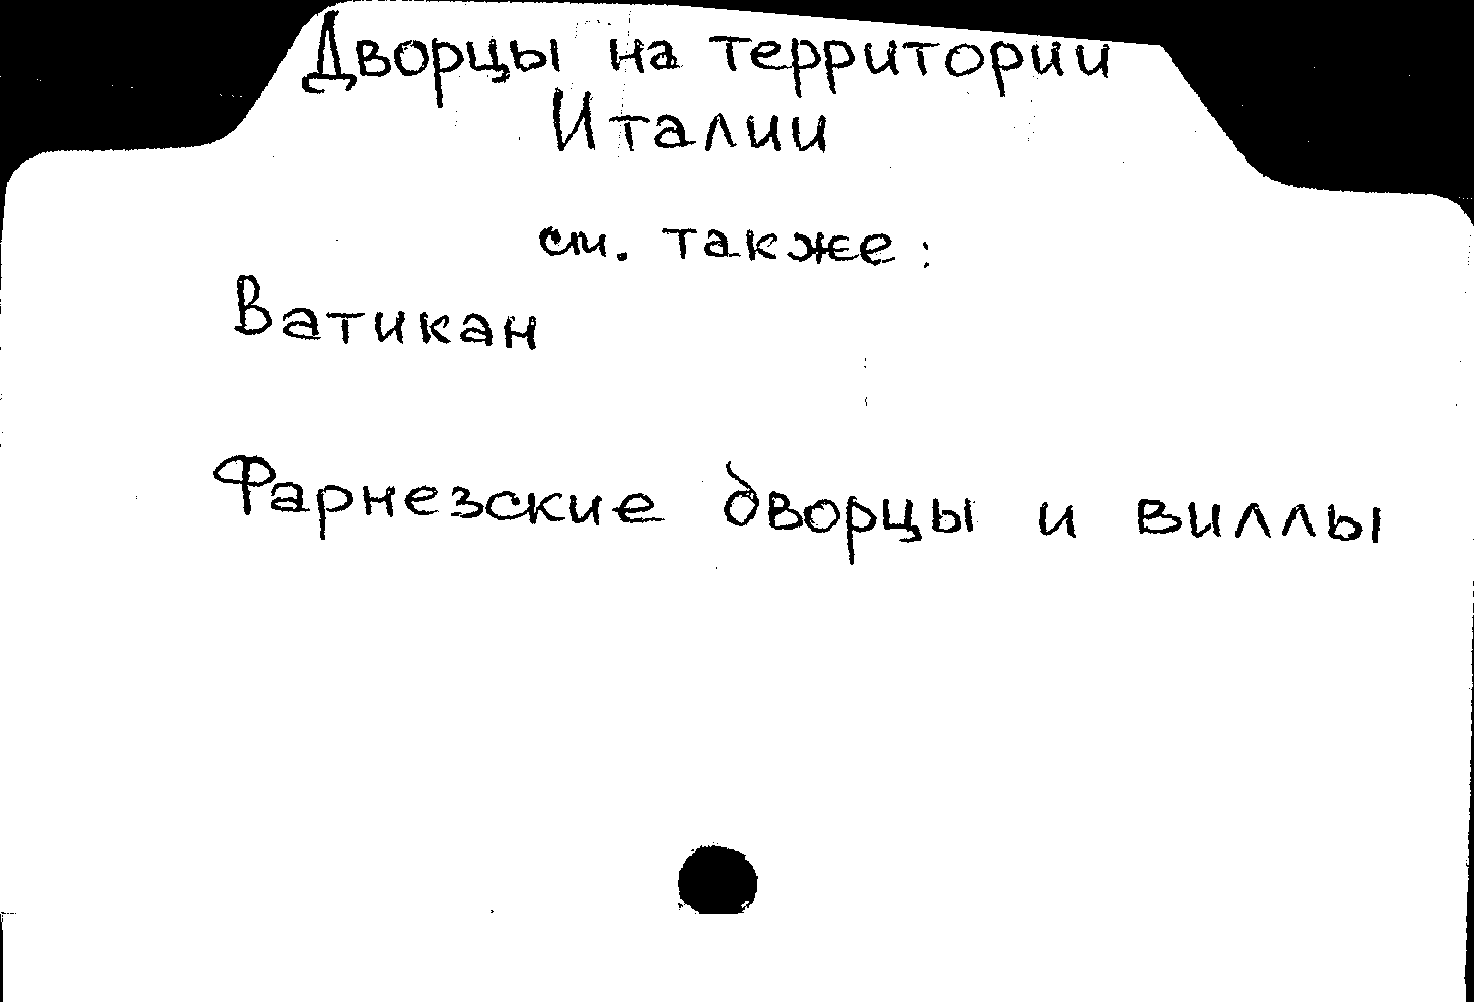 Дворцы на территории
Италии
см. также:
Ватикан
Фарнезские дворцы и виллы